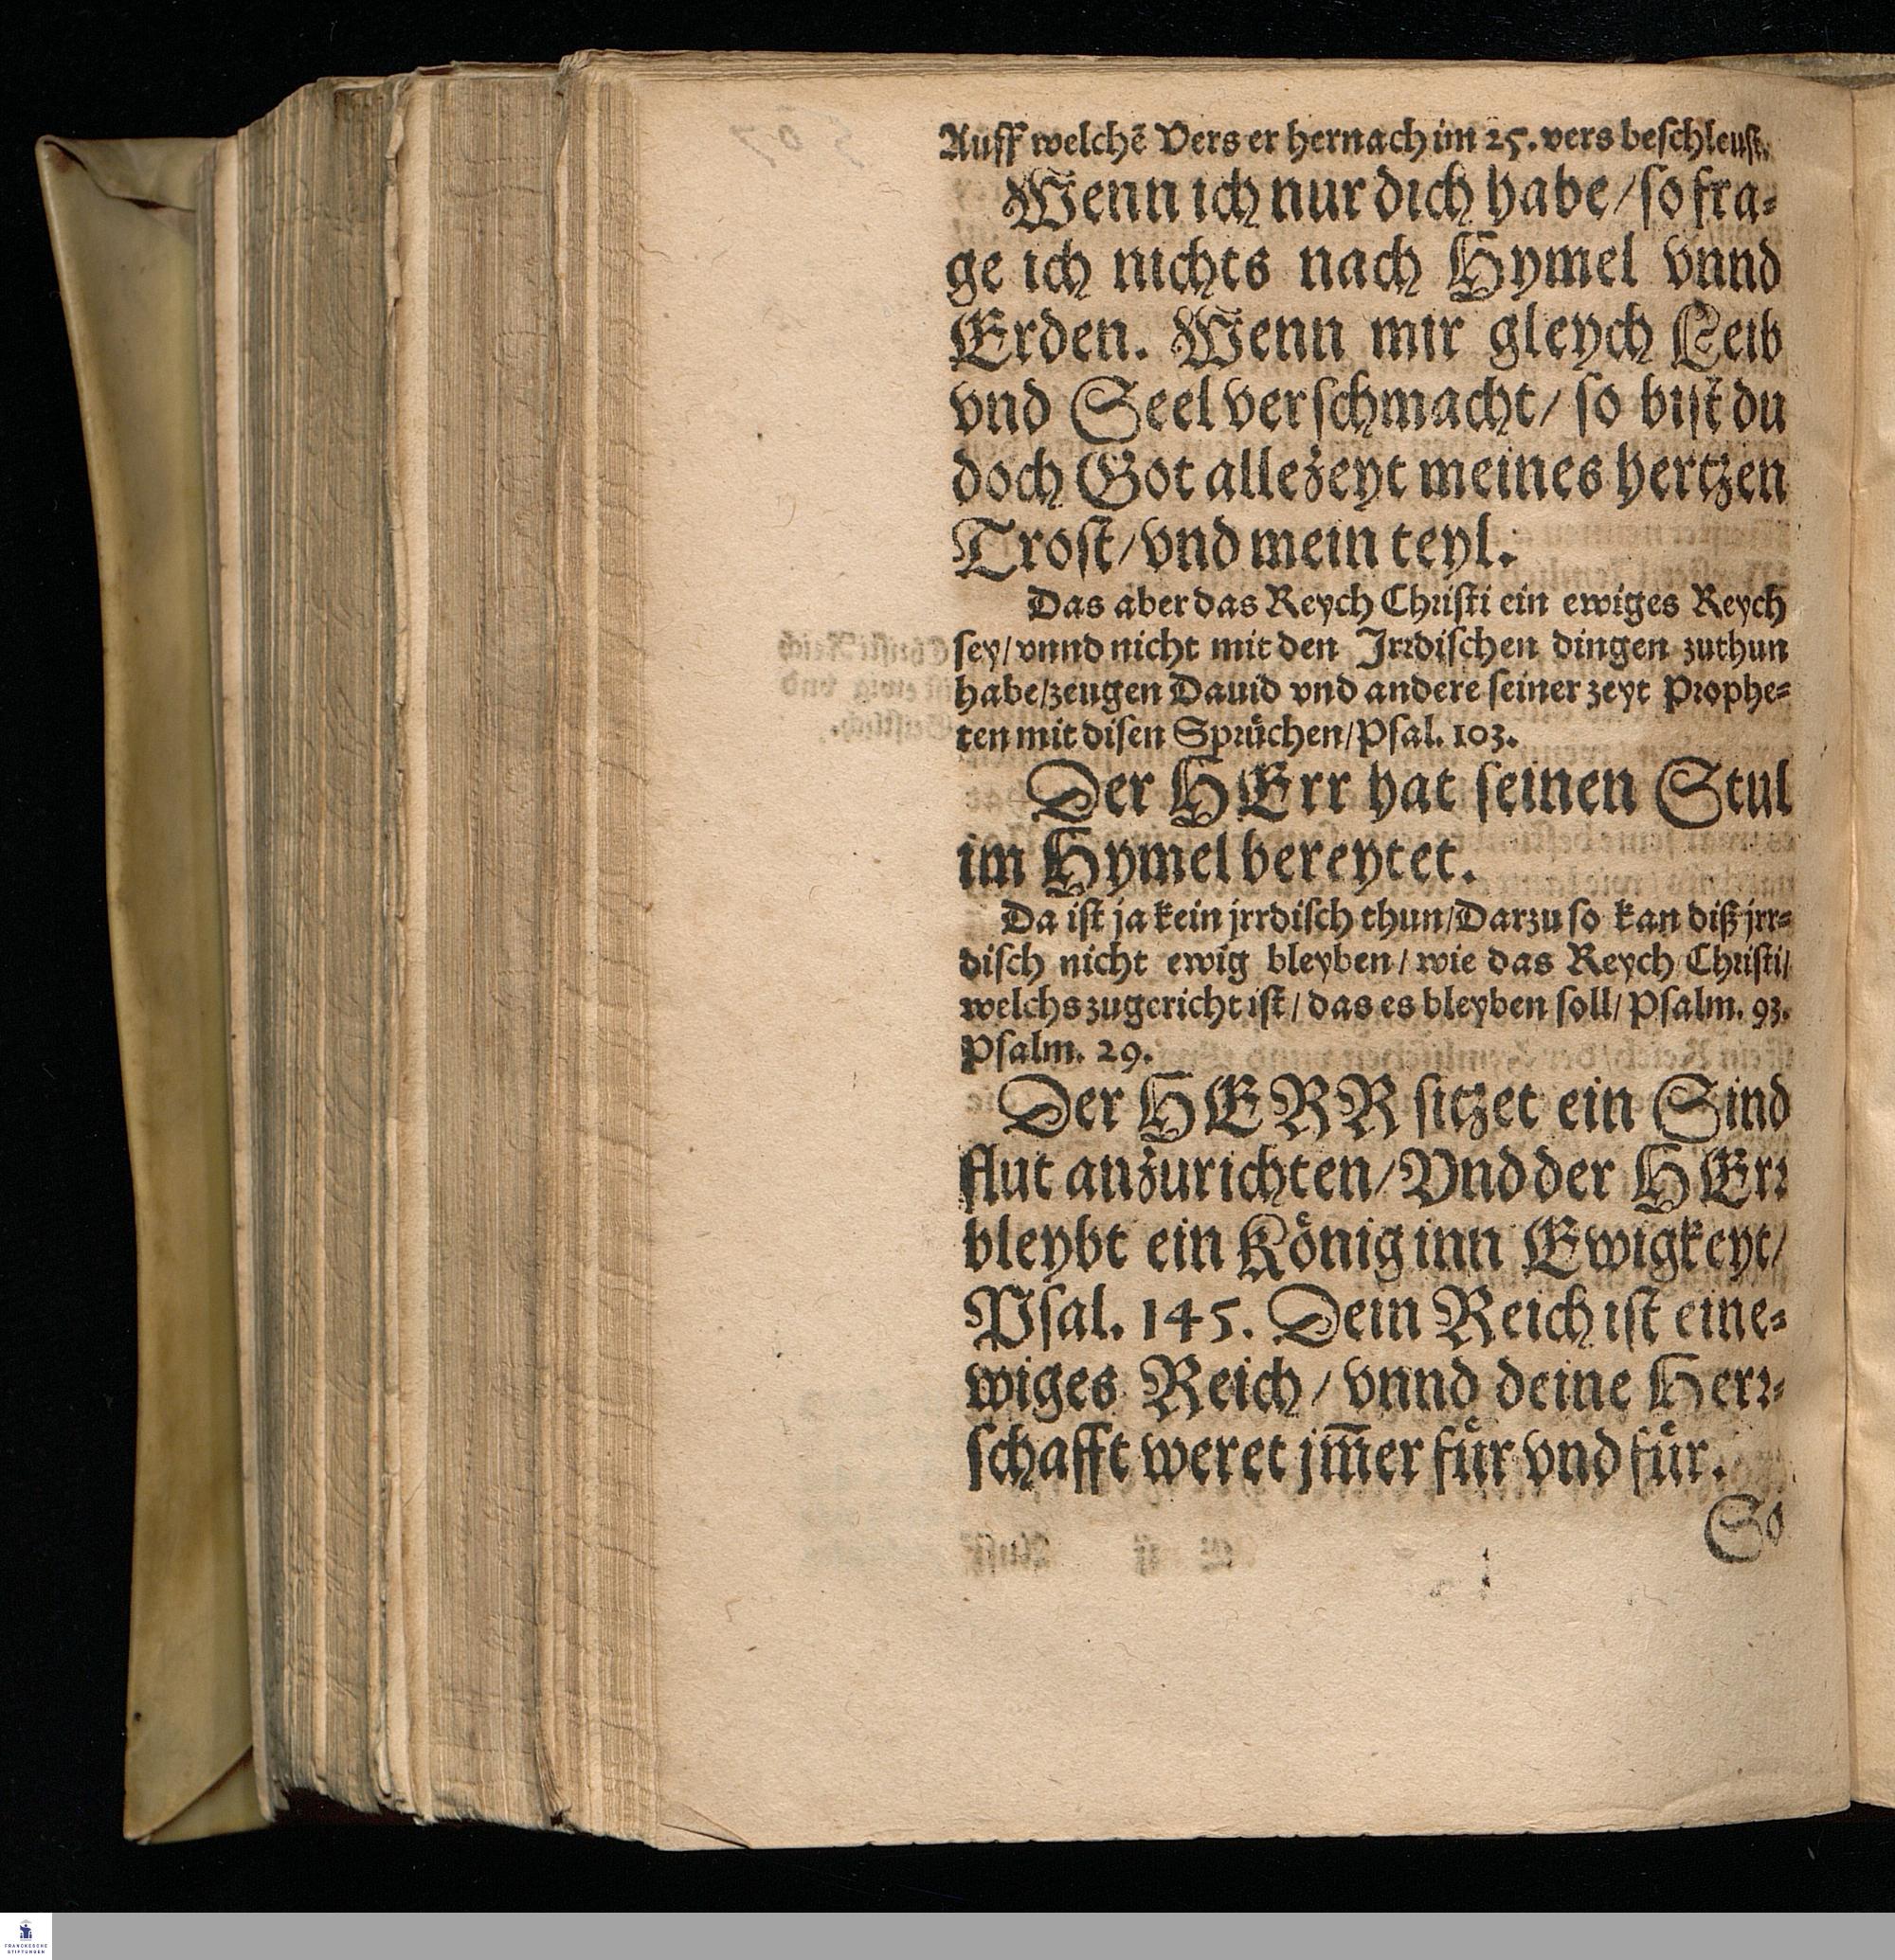 Auff welchẽ Vers er hernach im 25. vers beschleust.
Wenn ich nur dich habe/ so fra⸗
ge ich nichts nach Hymel vnnd
Erden. Wenn mir gleych Leib
vnd Seel verschmacht/ so bist du
doch Got allezeyt meines hertzen
Trost/ vnd mein teyl.
Das aber das Reych Christi ein ewiges Reych
sey/ vnnd nicht mit den Jrrdischen dingen zuthun
habe/ zeugen Dauid vnd andere seiner zeyt Prophe⸗
ten mit disen Sprüchen/ Psal. 103.
Der HErr hat seinen Stul
im Hymel bereytet.
Da ist ja kein jrrdisch thun/ Darzu so kan diß jrr⸗
disch nicht ewig bleyben/ wie das Reych Christi/
welchs zugericht ist/ das es bleyben soll/ Psalm. 93.
Psalm. 29.
Der HERR sitzet ein Sind
flut anzurichten/ Vnd der HErr
bleybt ein König inn Ewigkeyt/
Psal. 145. Dein Reich ist ein e⸗
wiges Reich/ vnnd deine Herr⸗
schafft weret jm̃er für vnd für.
So
FRANCKESCHE
STIFTUNGEN